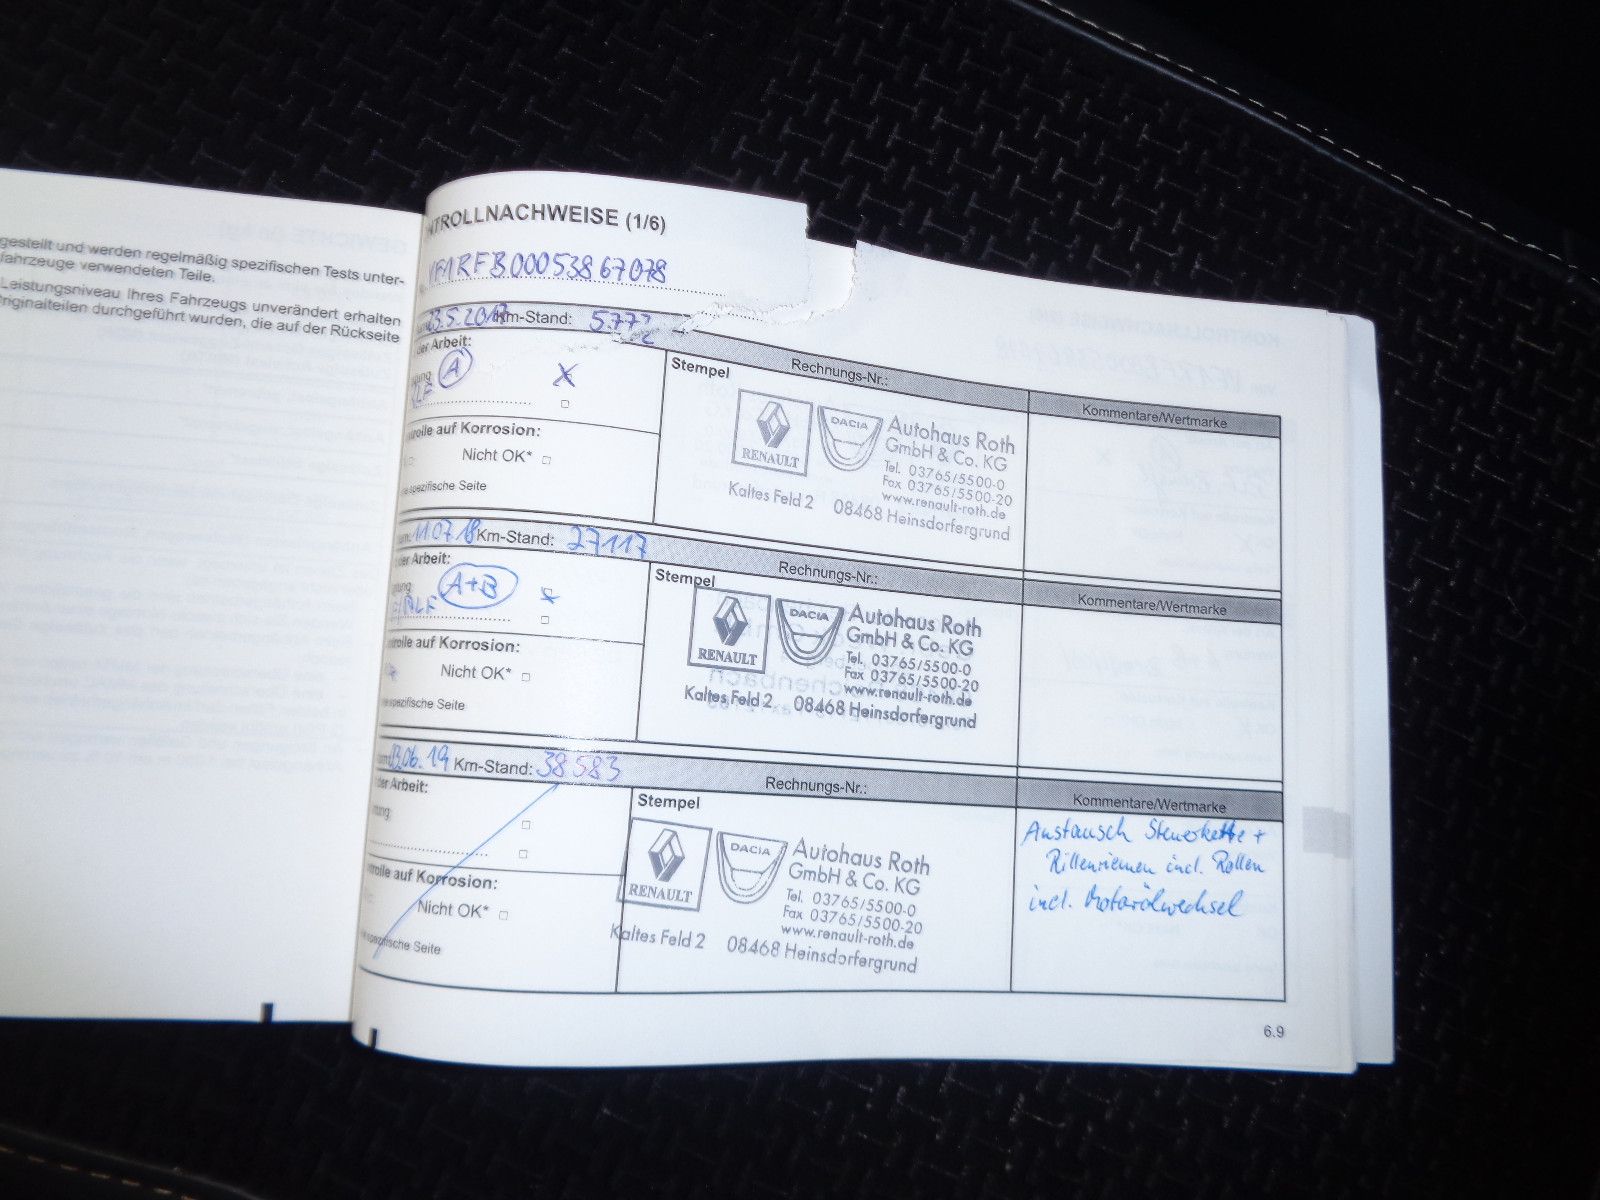 gestellt und werden regelmäßig spezifischen Tests unter-
fahrzeuge verwendeten Teile.
Leistungsniveau Ihres Fahrzeugs unverändert erhalten
riginalteilen durchgeführt wurden, die auf der Rückseite
NTROLLNACHWEISE (1/6)
VF1RFB00053867078
23.5.2017 Km-Stand: 5772
der Arbeit:
Rechnungs-Nr.:
Kommentare/Wertmarke
Stempel
A
RENAULT
DACIA
Autohaus Roth
GmbH & Co. KG
Tel. 03765/5500-0
Fax 03765/5500-20
www.renault-roth.de
Kaltes Feld 2 08468 Heinsdorfergrund
ntrolle auf Korrosion:
Nicht OK*
spezifische Seite
11.07.18 Km-Stand: 27117
der Arbeit:
Rechnungs-Nr.:
Kommentare/Wertmarke
Stempel
A+B
RENAULT
DACIA
Autohaus Roth
GmbH & Co. KG
Tel. 03765/5500-0
Fax 03765/5500-20
www.renault-roth.de
Kaltes Feld 2 08468 Heinsdorfergrund
ntrolle auf Korrosion:
Nicht OK*
spezifische Seite
03.06.19 Km-Stand: 38583
der Arbeit:
Rechnungs-Nr.:
Kommentare/Wertmarke
Stempel
RENAULT
DACIA
Autohaus Roth
GmbH & Co. KG
Tel. 03765/5500-0
Fax 03765/5500-20
www.renault-roth.de
Kaltes Feld 2 08468 Heinsdorfergrund
Austausch Steuerkette +
Rillenriemen incl. Rollen
incl. Motorölwechsel
ntrolle auf Korrosion:
Nicht OK*
spezifische Seite
6.9